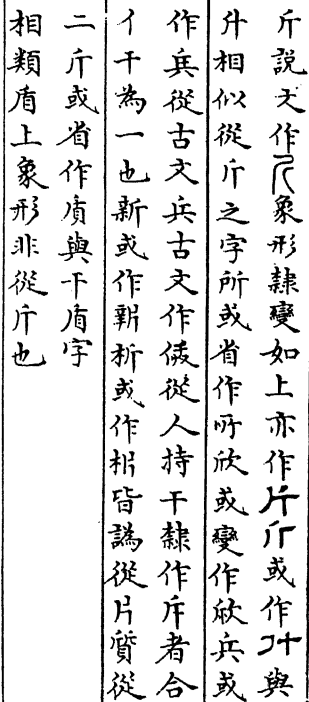 斤說文作𣂑象形隸變如上亦作斤丌或作廾與
升相似從斤之字所或省作所欣或變作欣兵或
作兵從古文兵古文作㑔從人持干隸作斥者合
亻干為一也新或作新析或作枂皆譌從片質從
二斤或省作貭與干盾字
相類盾上象形非從斤也